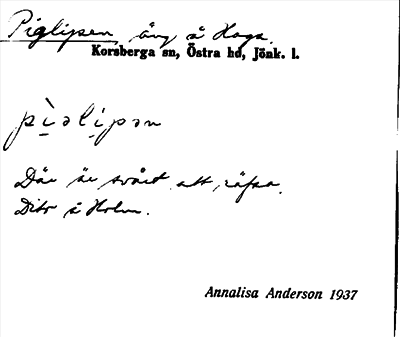 Piglipen äng å Haga.
Korsberga sn, Östra hd, Jönk. l.
pìəlipən
Där är svårt att räfsa.
Dito å Holm.
Annalisa Anderson 1937